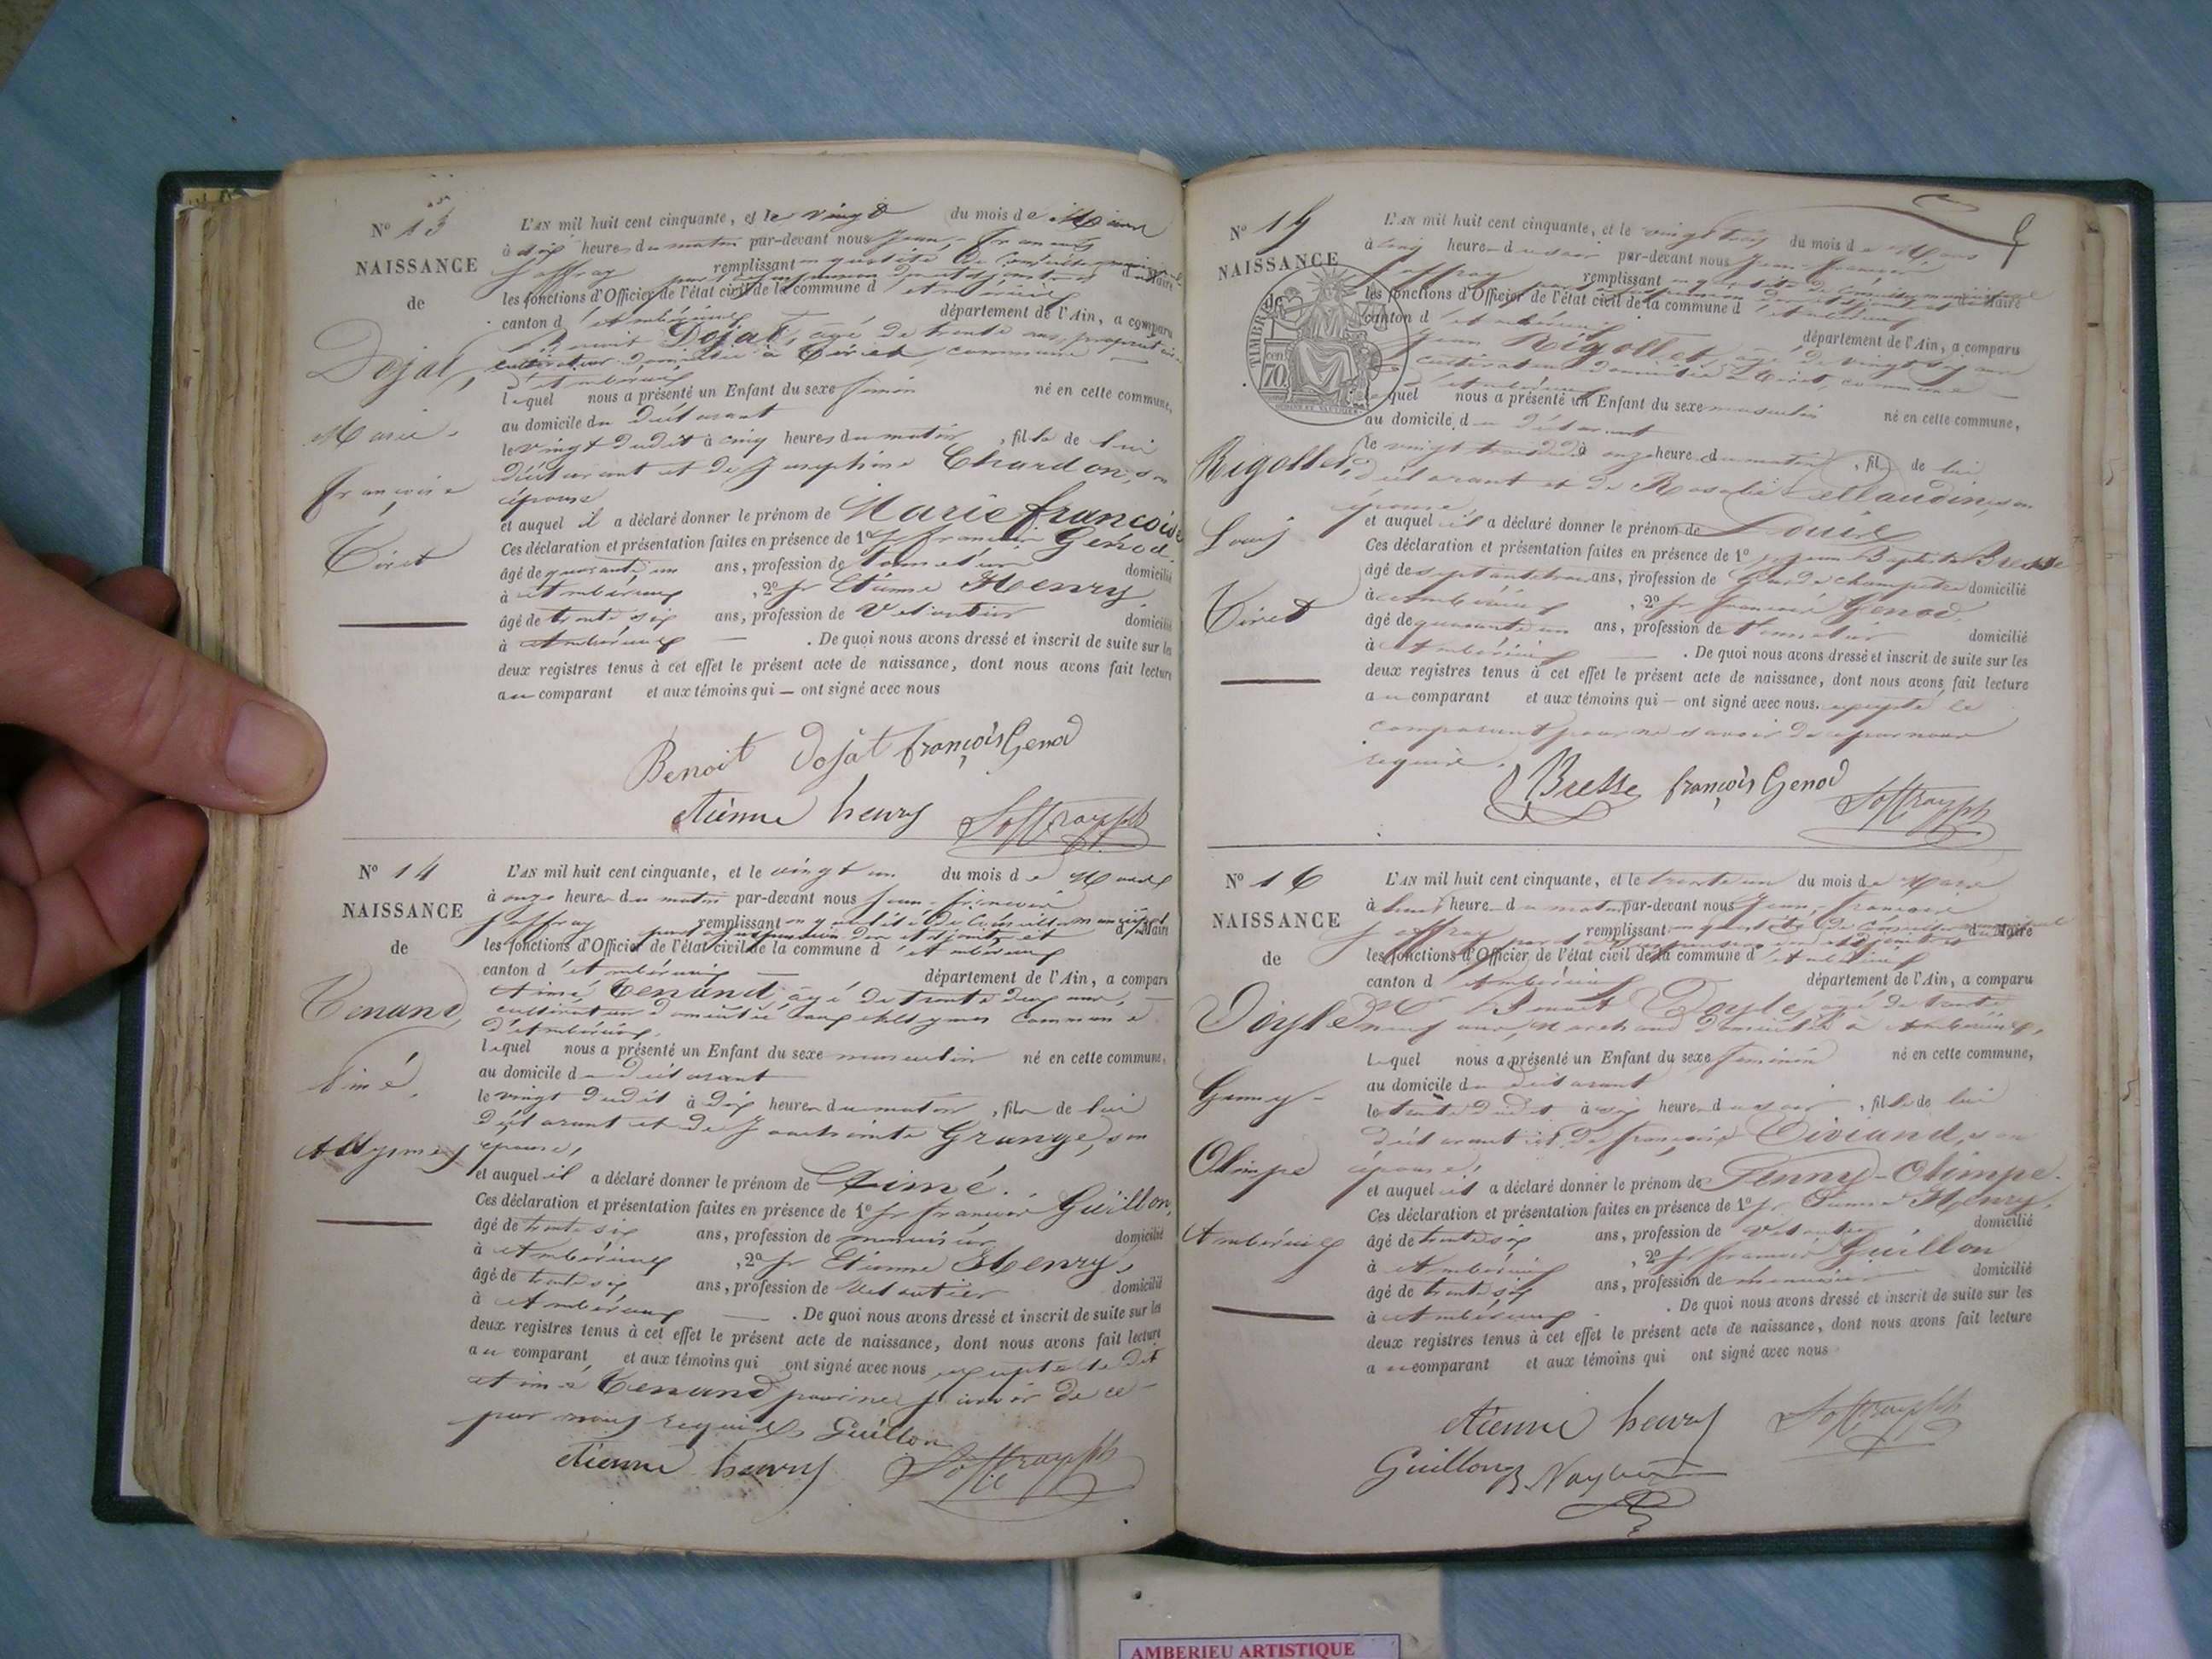 N° 13
NAISSANCE
de
Dojat,
Marie
françoise
Tiret
L'AN mil huit cent cinquante, et le vingt du mois de Mars
à dix heures du matin par-devant nous Jean-françois
Joffray remplissant en qualité de Conseiller municipal d Maire
les fonctions d'Officier de l'état civil de la commune d'Ambérieux
canton d'Ambérieux département de l'Ain, a comparu
Benoit Dojat, âgé de trente ans, propriétaire
cultivateur domicilié à Tiret, commune
d'Ambérieux
lequel nous a présenté un Enfant du sexe féminin né en cette commune,
au domicile du déclarant
le vingt dudit à cinq heures du matin, fille de lui
déclarant et de Josephine Chardon, son
épouse
et auquel il a déclaré donner le prénom de Marie françoise
Ces déclaration et présentation faites en présence de 1° Sr françois Genod
âgé de quarante un ans, profession de tonnelier domicilié
à Ambérieux, 2° Sr Etienne Henry
âgé de trente six ans, profession de domicilié
à Ambérieux — . De quoi nous avons dressé et inscrit de suite sur les
deux registres tenus à cet effet le présent acte de naissance, dont nous avons fait lecture
au comparant et aux témoins qui — ont signé avec nous
Benoit Dojat françois Genod
etienne henry Joffray
N° 14
NAISSANCE
de
Tenand,
Aimé,
Allymes
L'AN mil huit cent cinquante, et le vingt un du mois de Mars
à onze heures du matin par-devant nous Jean-françois
Joffray remplissant en qualité de Conseiller municipal d Maire
les fonctions d'Officier de l'état civil de la commune d'Ambérieux
canton d'Ambérieux — département de l'Ain, a comparu
Aimé Tenand, âgé de trente deux ans,
cultivateur domicilié aux Allymes commune
d'Ambérieux,
lequel nous a présenté un Enfant du sexe masculin né en cette commune,
au domicile du déclarant
le vingt dudit à dix heures du matin, fils de lui
déclarant et de Grange, son
épouse,
et auquel il a déclaré donner le prénom de Aimé.
Ces déclaration et présentation faites en présence de 1° Sr françois Guillon,
âgé de trente six ans, profession de menuisier domicilié
à Ambérieux, 2° Sr Etienne Henry,
âgé de trente six ans, profession de domicilié
à Ambérieux — . De quoi nous avons dressé et inscrit de suite sur les
deux registres tenus à cet effet le présent acte de naissance, dont nous avons fait lecture
au comparant et aux témoins qui ont signé avec nous excepté le dit
Aimé Tenand pour ne savoir de ce
par nous requis Guillon
etienne henry Joffray
N° 15
NAISSANCE
TIMBRE
70
Rigollet,
Louis
Tiret
L'AN mil huit cent cinquante, et le vingt trois du mois de Mars
à cinq heures du soir par-devant nous Jean-françois
Joffray remplissant en qualité de Conseiller municipal d Maire
les fonctions d'Officier de l'état civil de la commune d'Ambérieux
canton d'Ambérieux département de l'Ain, a comparu
Jean Rigollet, âgé de vingt six ans
cultivateur domicilié à Tiret, commune
d'Ambérieux
lequel nous a présenté un Enfant du sexe masculin né en cette commune,
au domicile du déclarant
le vingt trois dudit à onze heures du matin, fils de lui
déclarant et de Rosalie son
épouse
et auquel il a déclaré donner le prénom de Louis
Ces déclaration et présentation faites en présence de 1° Sr Jean Baptiste Bresse
âgé de septante trois ans, profession de Garde champêtre domicilié
à Ambérieux, 2° Sr françois Genod
âgé de quarante un ans, profession de tonnelier domicilié
à Ambérieux — . De quoi nous avons dressé et inscrit de suite sur les
deux registres tenus à cet effet le présent acte de naissance, dont nous avons fait lecture
au comparant et aux témoins qui — ont signé avec nous. excepté le
comparant pour ne savoir de ce par nous
requis.
Bresse françois Genod Joffray
N° 16
NAISSANCE
de
Doyle
Genny-
Olimpe
Ambérieux
L'AN mil huit cent cinquante, et le trente un du mois de Mars
à huit heures du matin par-devant nous Jean-françois
Joffray remplissant en qualité de Conseiller municipal d Maire
les fonctions d'Officier de l'état civil de la commune d'Ambérieux
canton d'Ambérieux département de l'Ain, a comparu
Mr Benoit Doyle, âgé de trente
neuf ans, Marchand domicilié à Ambérieux,
lequel nous a présenté un Enfant du sexe féminin né en cette commune,
au domicile du déclarant
le trente dudit à six heures du soir, fille de lui
déclarant et de françoise Tiviand, son
épouse,
et auquel il a déclaré donner le prénom de Jenny-Olimpe.
Ces déclaration et présentation faites en présence de 1° Sr Etienne Henry,
âgé de trente six ans, profession de domicilié
à Ambérieux, 2° Sr françois Guillon
âgé de trente six ans, profession de menuisier domicilié
à Ambérieux . De quoi nous avons dressé et inscrit de suite sur les
deux registres tenus à cet effet le présent acte de naissance, dont nous avons fait lecture
au comparant et aux témoins qui ont signé avec nous
etienne henry Joffray
Guillon
AMBERIEU ARTISTIQUE